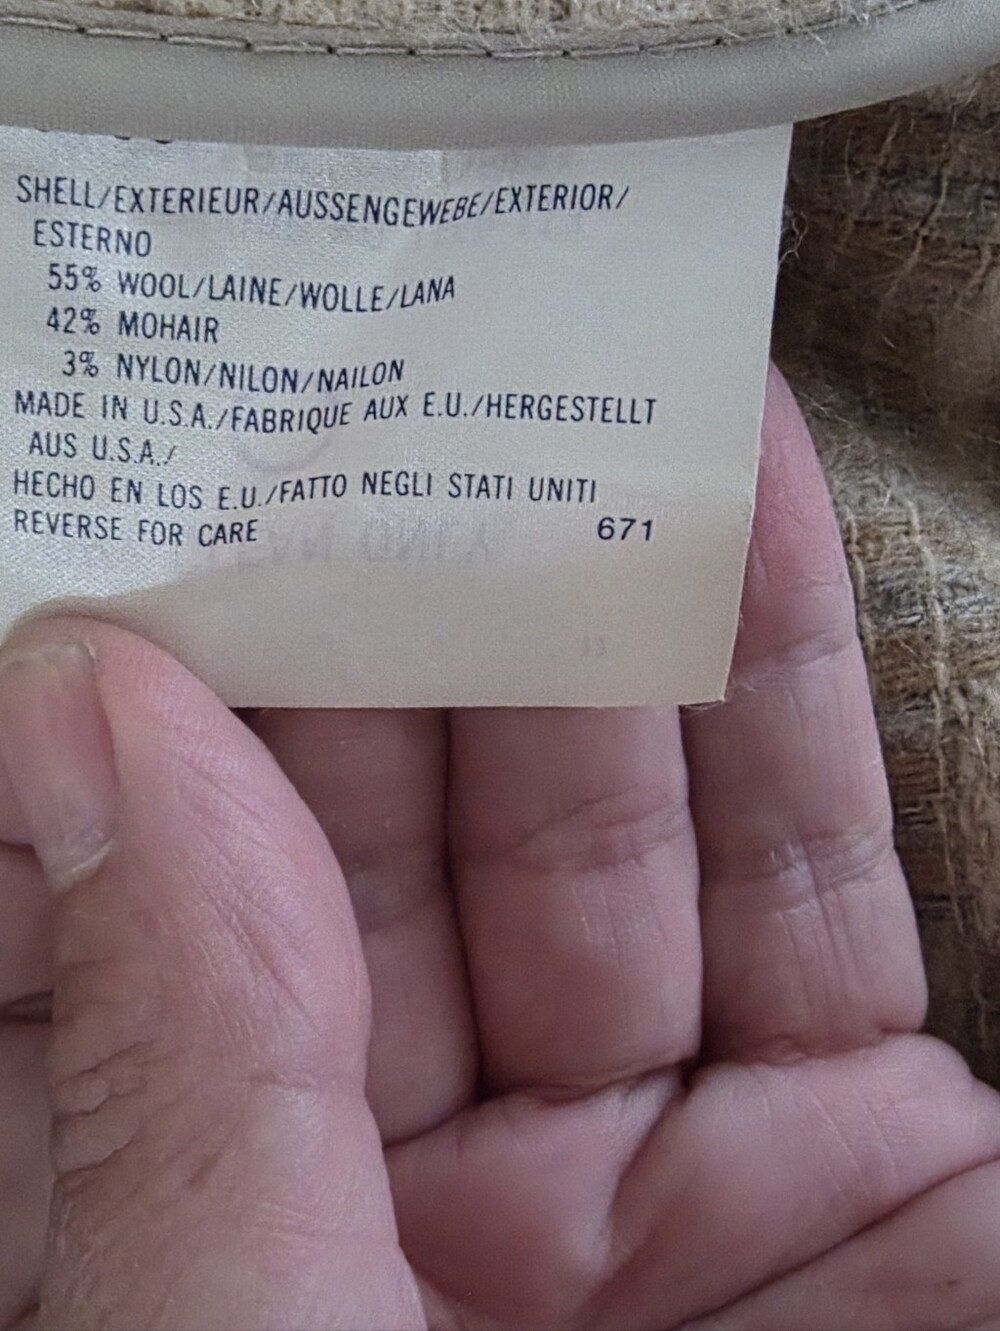 SHELL/EXTERIEUR/AUSSENGEWEBE/EXTERIOR/
ESTERNO
55% WOOL/LAINE/WOLLE/LANA
42% MOHAIR
3% NYLON/NILON/NAILON
MADE IN U.S.A./FABRIQUE AUX E.U./HERGESTELLT
AUS U.S.A./
HECHO EN LOS E.U./FATTO NEGLI STATI UNITI
REVERSE FOR CARE 671